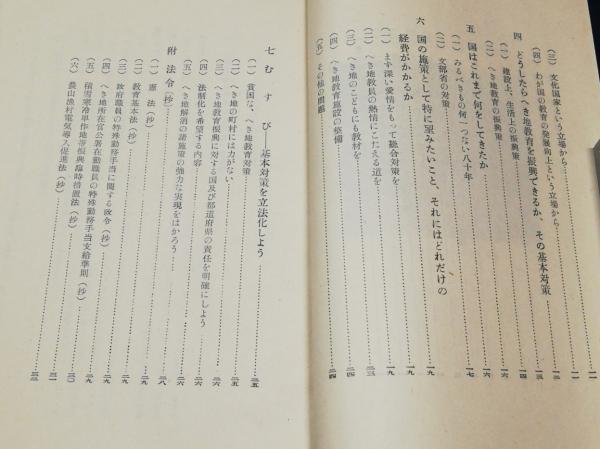 （三）文化国家という立場から……一一
（四）わが国の教育の発展向上という立場から……一二
四 どうしたらへき地教育を振興できるか、その基本対策……一三
（一）建設上、生活上の振興策……一六
（二）へき地教育の振興策……一六
五 国はこれまで何をしてきたか……一七
（一）みるべきもの何一つない八十年
（二）文部省の対策……一九
六 国の施策として特に望みたいこと、それにはどれだけの
経費がかかるか……一九
（一）まず深い愛情をもって総合対策を……一九
（二）へき地教員の熱情にこたえる道を……二三
（三）へき地のこどもにも教材を
（四）へき地教育施設の整備……二四
（五）その他の問題……二四
七 むすび——基本対策を立法化しよう……二五
（一）貧困な、へき地教育対策……二五
（二）へき地の町村には力がない……二五
（三）へき地教育振興に対する国及び都道府県の責任を明確にしよう……二六
（四）法制化を希望する内容……二六
（五）へき地解消の諸施策の強力な実現をはかろう……二六
附 法令（抄）……二八
（一）憲法（抄）……二九
（二）教育基本法（抄）……二九
（三）政府職員の特殊勤務手当に関する政令（抄）……二九
（四）へき地所在官公署在勤職員の特殊勤務手当支給準則（抄）……二九
（五）積雪寒冷単作地帯振興臨時措置法（抄）……三〇
（六）農山漁村電気導入促進法（抄）……三一